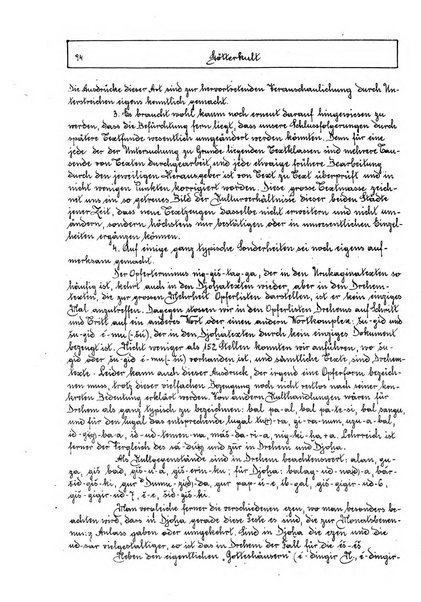 94 Götterkult
Die Ausdrücke dieser Art sind zur hervortretenden Veranschaulichung durch Un-
terstreichen eigens kenntlich gemacht.
3. Es braucht wohl kaum noch erneut darauf hingewiesen zu
werden, dass die Befürchtung fern liegt, dass unsere Schlussfolgerungen durch
spätere Textfunde wesentlich umgeändert werden könnten. Denn für eine
jede der der Untersuchung zu Grunde liegenden Textklassen sind mehrere Tau-
sende von Texten durchgearbeitet, und jede etwaige frühere Bearbeitung
durch den jeweiligen Herausgeber ist von Text zu Text überprüft und in
nicht wenigen Punkten korrigiert worden. Diese grosse Textmasse zeich-
net uns ein so getreues Bild der Kulturverhältnisse dieser beiden Städte
jener Zeit, dass neue Textzeugen dasselbe nicht erweitern und nicht um-
ändern, sondern höchstens nur bestätigen oder in unwesentlichen Einzel-
heiten ergänzen können.
4. Auf einige ganz typische Sonderheiten sei noch eigens auf-
merksam gemacht.
Der Opferterminus nig-giš-tag-ga, der in den Urukaginatexten so
häufig ist, kehrt auch in den Djohatexten wieder, aber in den Drehem-
texten, die zur grossen Mehrheit Opferlisten darstellen, ist er kein einziges
Mal anzutreffen. Dagegen stossen wir in den Opferlisten Drehems auf Schritt
und Tritt auf ein anderes Wort oder einen andern Wortkomplex: šu-gid und
šu-gid é-muḫaldim), der in den Djohatexten durch kein einziges Dokument
bezeugt ist. Nicht weniger als 152 Stellen konnten wir anführen, wo šu-
gid oder šu-gid é-mu vorhanden ist, und sämtliche Texte sind Drehem-
texte. Leider kann auch dieser Ausdruck, der irgend eine Opferform bezeich-
nen muss, trotz dieser vielfachen Bezeugung noch nicht restlos nach seiner kon-
kreten Bedeutung erklärt werden. Von andern Kulthandlungen wären für
Drehem als ganz typisch zu bezeichnen: bal pa-al, bal pa-te-si, bal sangu,
und für den lugal das entsprechende lugal ra, gi-ra-num, uzu-a-bal,
id-ba-a, id-ud-temen-na, maš-da-ri-a, nig-ki-ḫar-a. Lehrreich ist
ferner der Vergleich des sá-dug und zur in Drehem und Djoha.
Als Kultgegenstände sind in Drehem beachtenswert: alan, gu-
za, giš bad, giš-ù-a, giš-erin-ku; für Djoha: balag-ud-da, a, bár-
sid-giš-ki, gur Dumu-zi-da, gur pap-ù-e, ib-gal, giš-gigir-ud-6,
giš-gigir-ud-7, é-e, sid-giš-ki.
Man vergleiche ferner die verschiedenen ezen, wo man besonders be-
achten wird, dass in Djoha gerade diese Feste es sind, die zur Monatsbenen-
nung Anlass gaben oder umgekehrt. Sind in Djoha die ezen und die
ud-sar vielgestaltiger, so ist das in Drehem der Fall für die èš-èš
Neben den eigentlichen „Gotteshäusern“ (é-dingir N., é-dingir-